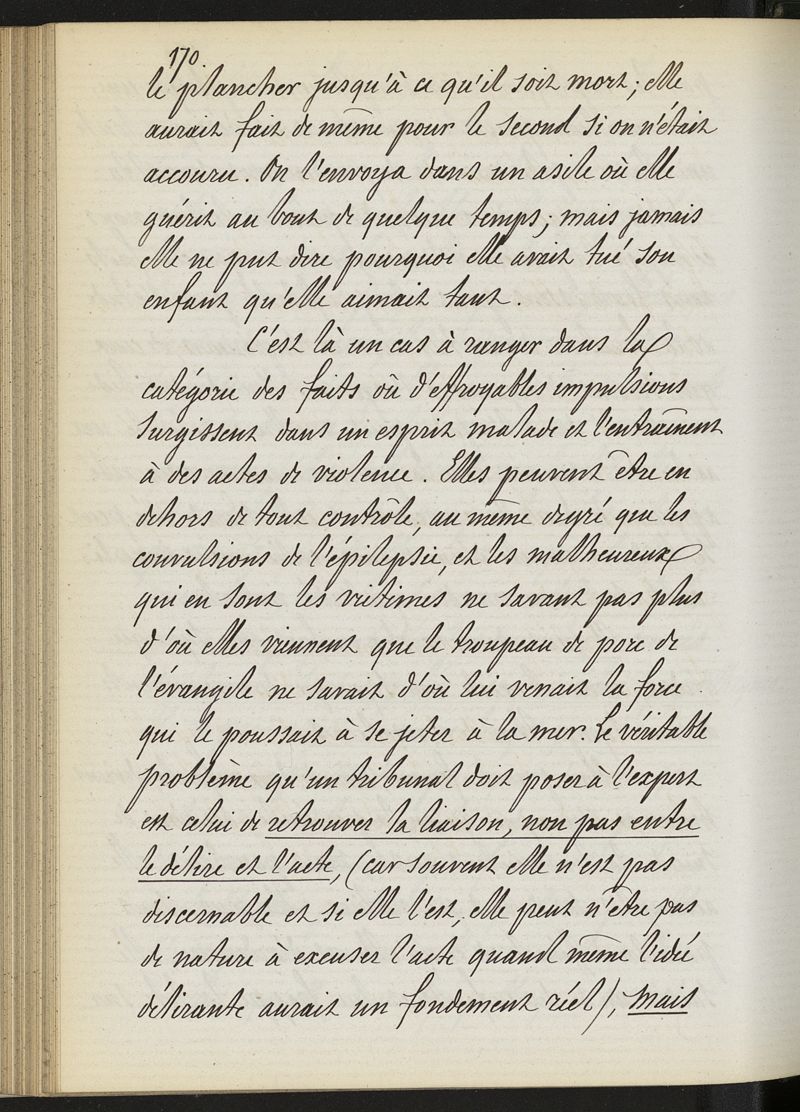 170
le plancher jusqu'à ce qu'il soit mort ; elle
aurait fait de même pour le second si on n'était
accouru. On l'envoya dans un asile où elle
guérit au bout de quelque temps ; mais jamais
elle ne put dire pourquoi elle avait tué son
enfant qu'elle aimait tant.
C'est là un cas à ranger dans la
catégorie des faits où d'effroyables impulsions
surgissent dans un esprit malade et l'entraînent
à des actes de violence. Elles peuvent être en
dehors de tout contrôle, au même degré que les
convulsions de l'épilepsie, et les malheureux
qui en sont les victimes ne savant pas plus
d'où elles viennent que le troupeau de porc de
l'évangile ne savait d'où lui venait la force
qui le poussait à se jeter à la mer. Le véritable
problème qu'un tribunal doit poser à l'expert
est celui de retrouver la liaison, non pas entre
le délire et l'acte, (car souvent elle n'est pas
discernable et si elle l'est, elle peut n'être pas
de nature à excuser l'acte quand même l'idée
délirante aurait un fondement réel), mais